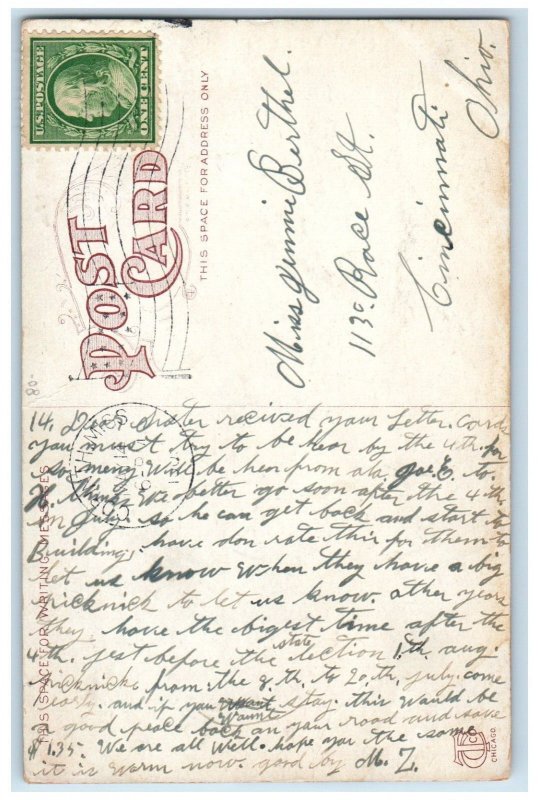 U.S. POSTAGE
ONE CENT
POST CARD
THIS SPACE FOR ADDRESS ONLY
Miss Jennie Berthel.
113 Race St.
Cincinnati
Ohio.
80-
THIS SPACE FOR WRITING MESSAGES
14. Dear Sister recived your Letter. Cards
you must try to be hear by the 4th. for
so meny will be hear from ala Joe to
I think We better go soon after the 4th
in July. so he can get back and start to
Building, have don rate this for them to
let us know When they have a big
picknick to let us know. other years
they have the biggest time after the
4th. jest before the state lection 1th. aug.
picknick from the 8th. to 20th, july. come
early. and if you Want stay. this Would be
a good peace back on your road and save
$1.35. We are all Well. hope you the same
it is warm now. good by M. Z.
MISS.
CHICAGO